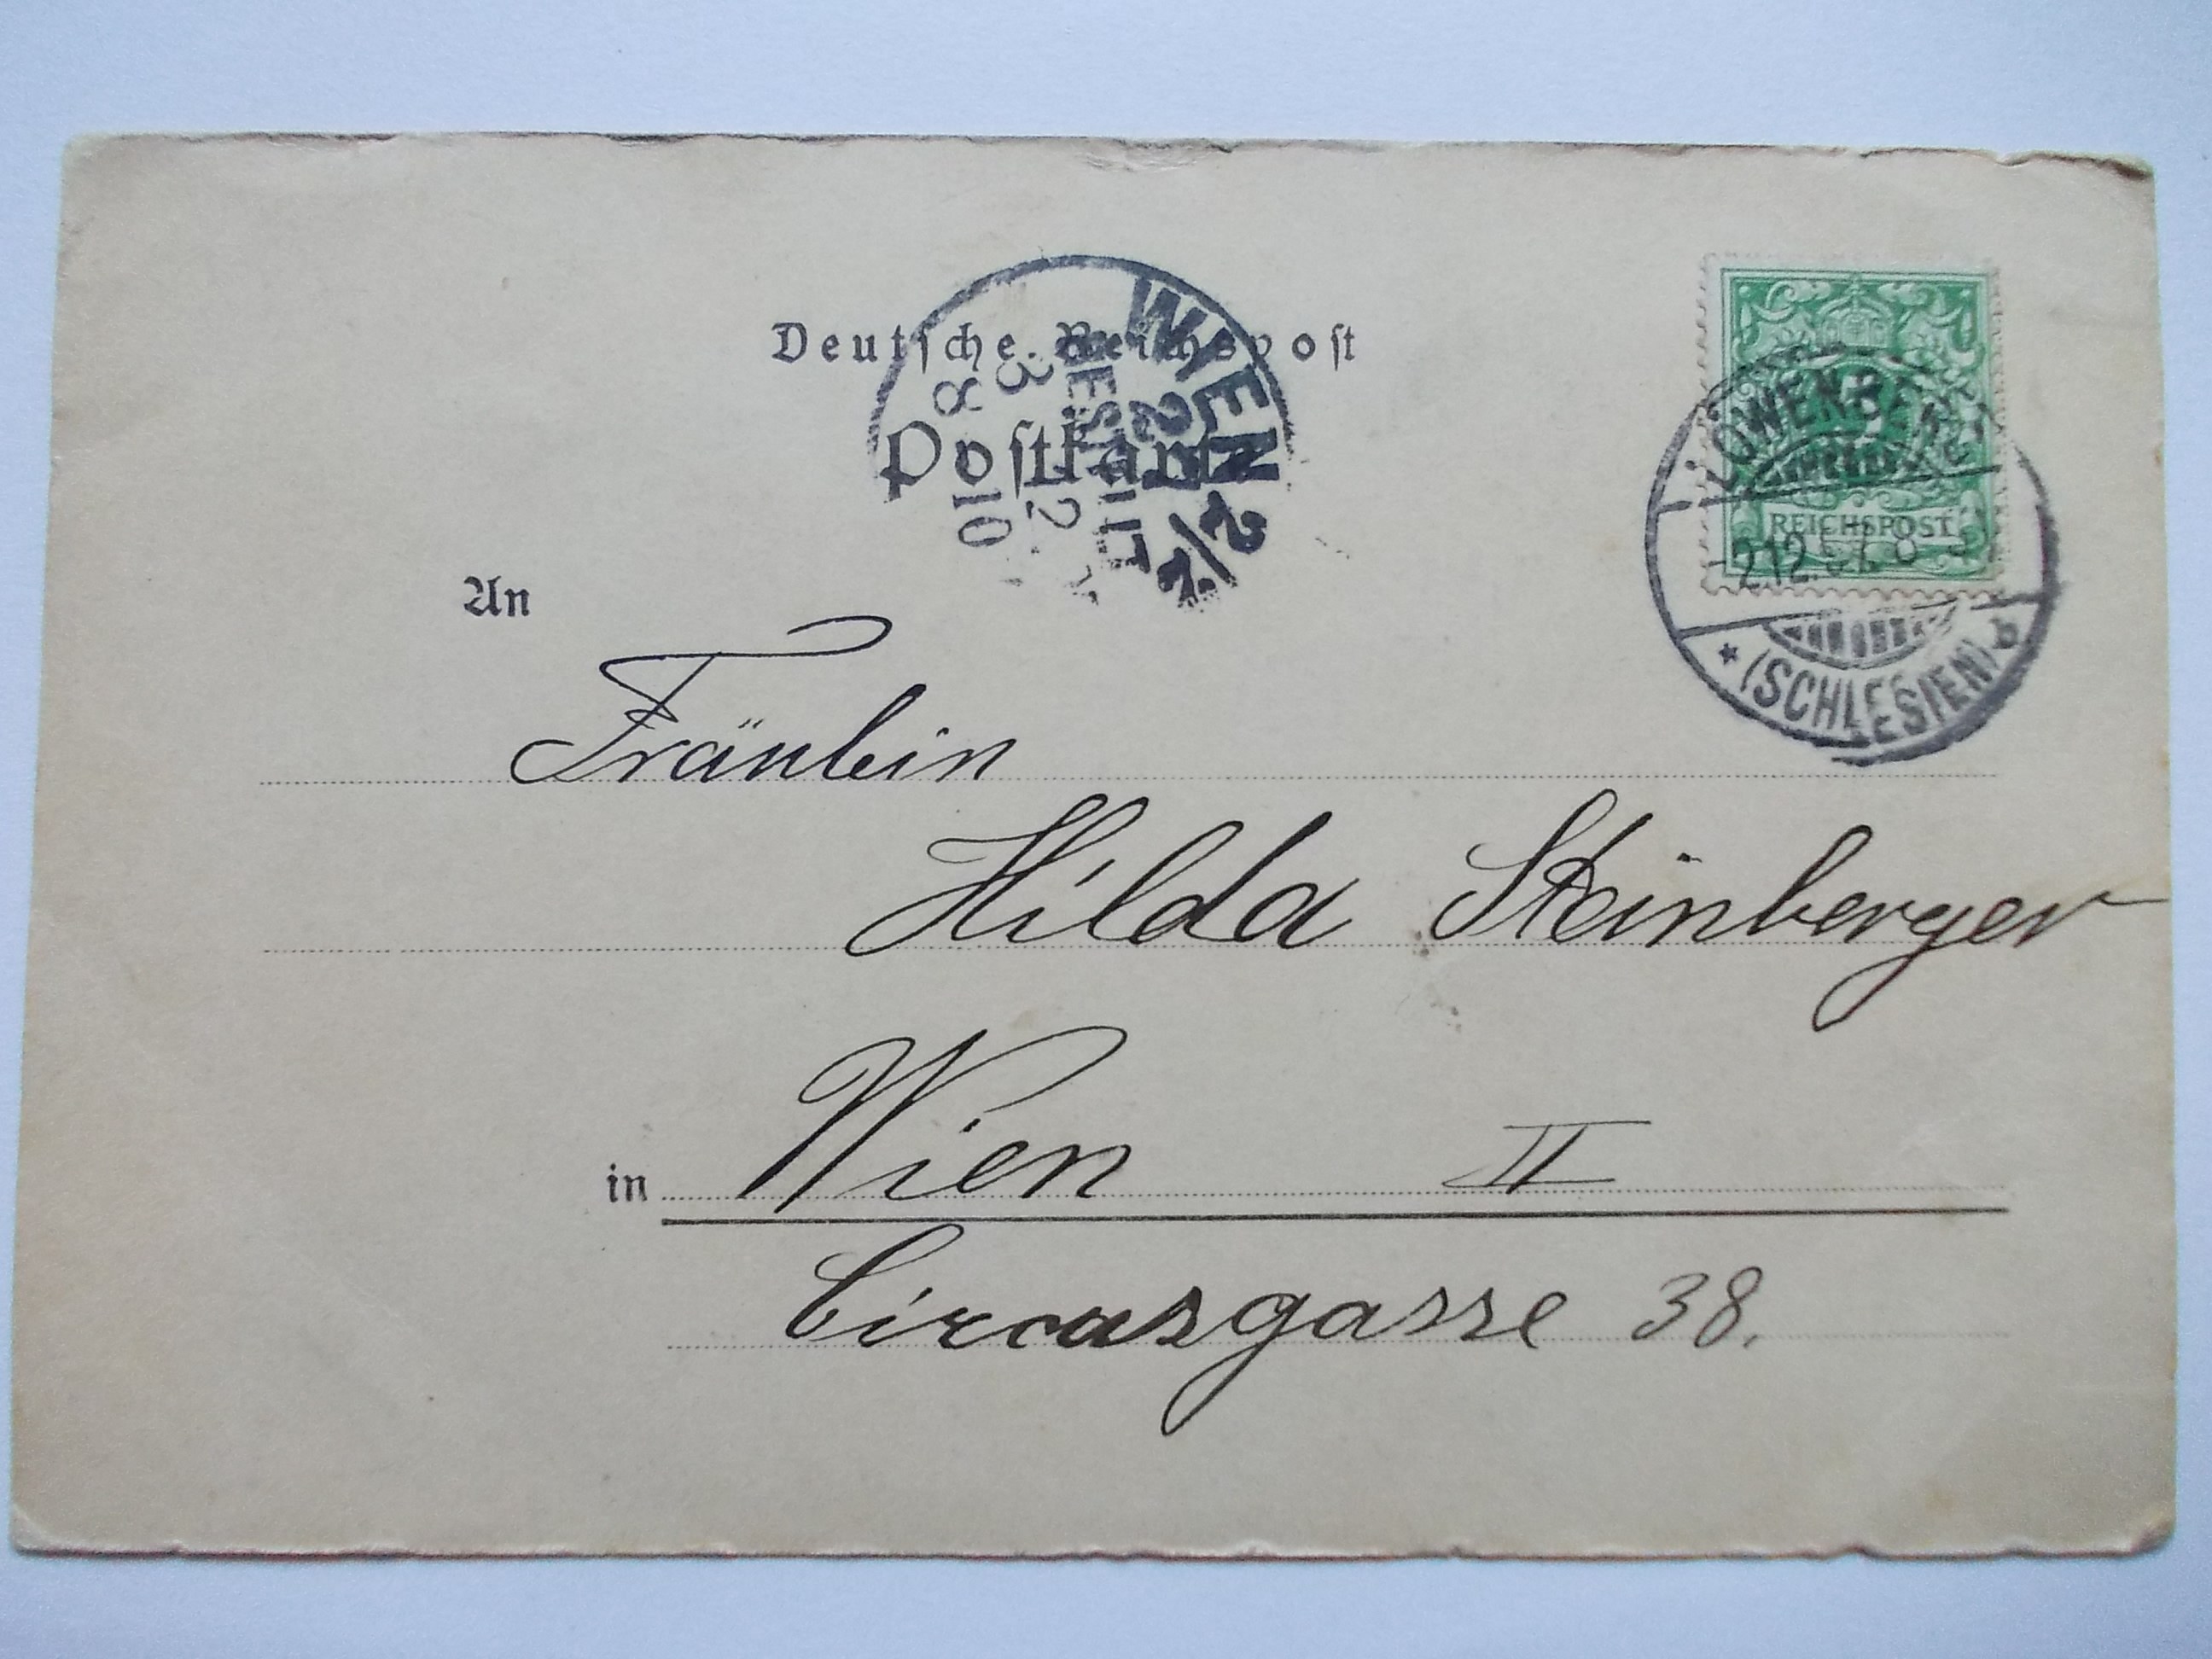 Deutsche Reichspost
Postkarte
WIEN 2/1
BESTELLT
3 12
8 10
5
REICHSPOST
LÖWENBERG
(SCHLESIEN) b
An
Fräulein
Hilda Steinberger
in Wien II
Circusgasse 38.